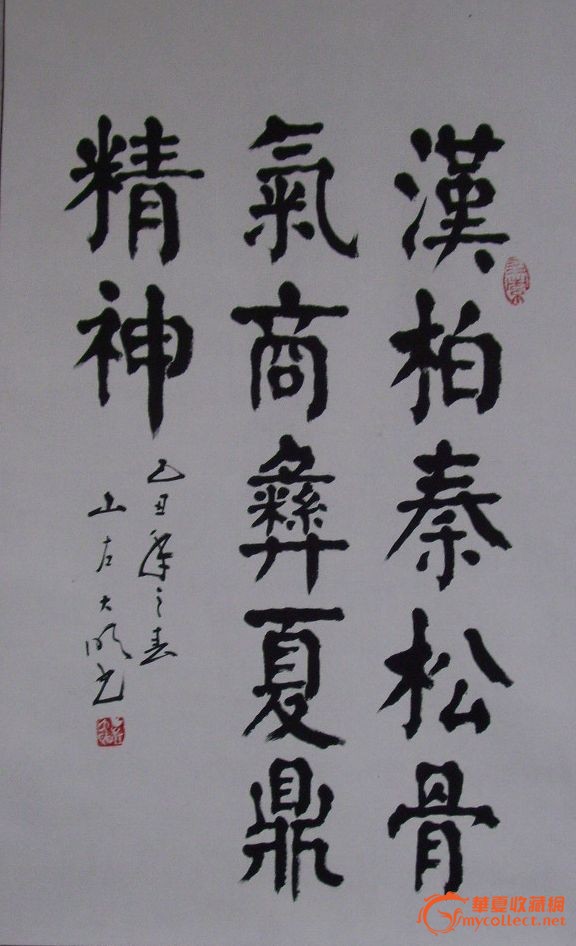 漢柏秦松骨
氣商彝夏鼎
精神
己丑年之春
山左大順书
華夏收藏網
mycollect.net